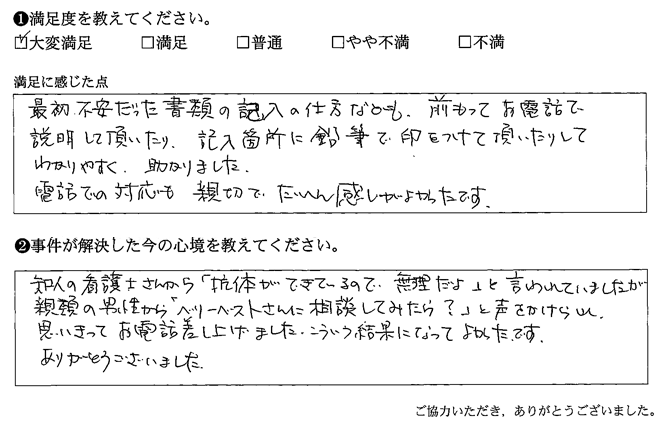 ❶満足度を教えてください。
☑大変満足 □満足 □普通 □やや不満 □不満
満足に感じた点
最初不安だった書類の記入の仕方なども、前もってお電話で
説明して頂いたり、記入箇所に鉛筆で印をつけて頂いたりして
わかりやすく、助かりました。
電話での対応も親切でたいへん感じがよかったです。
❷事件が解決した今の心境を教えてください。
知人の看護士さんから「抗体ができているので、無理だよ」と言われていましたが
親類の男性から「ベリーベストさんに相談してみたら?」と声をかけられ、
思いきってお電話差し上げました。こういう結果になってよかったです。
ありがとうございました。
ご協力いただき、ありがとうございました。